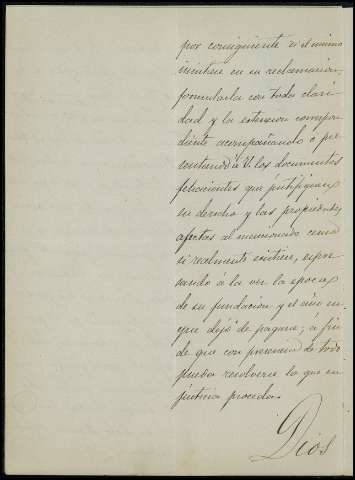 por consiguiente si el mismo
insistiere en su reclamacion,
formularla con toda clari-
dad y la estension correspon-
diente acompañando ó pre-
sentando á V. los documentos
fehacientes que justifiquen
su derecho y las propiedades
afectas al mencionado censo
si realmente existiere, espre-
sando á la vez la epoca
de su fundacion y el año en
que dejó de pagarse; á fin
de que con presencia de todo
pueda resolverse lo que en
justicia proceda.
Dios